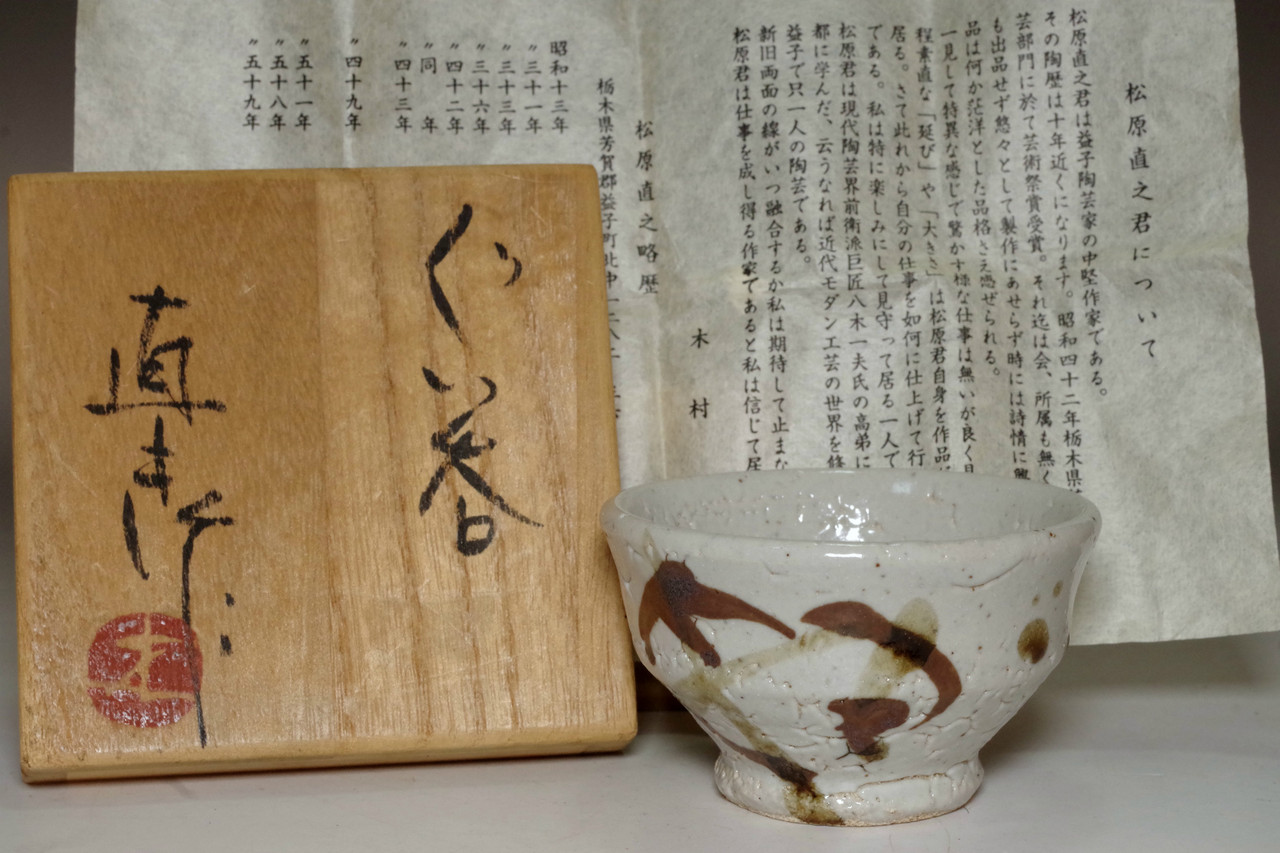 松原直之君について
松原直之君は益子陶芸家の中堅作家である。
その陶歴は十年近くになります。昭和四十二年栃木県
芸部門に於て芸術祭賞受賞。それ迄は会、所属も無く
も出品せず悠々として製作にあせらず時には詩情に興
品は何か茫洋とした品格さえ感ぜられる。
一見して特異な感じで驚かす様な仕事は無いが良く見
程素直な「延び」や「大きさ」は松原君自身を作品に
居る。さて此れから自分の仕事を如何に仕上げて行
である。私は特に楽しみにして見守って居る一人で
松原君は現代陶芸界前衛派巨匠八木一夫氏の高弟に
都に学んだ、云うなれば近代モダン工芸の世界を修
益子で只一人の陶芸である。
新旧両面の線がいつ融合するか私は期待して止まな
松原君は仕事を成し得る作家であると私は信じて居
木村
松原直之略歴
栃木県芳賀郡益子町北中
昭和十三年
〃三十一年
〃三十三年
〃三十六年
〃四十二年
〃同年
〃四十三年
〃四十九年
〃五十一年
〃五十八年
〃五十九年
ぐい呑
直之作